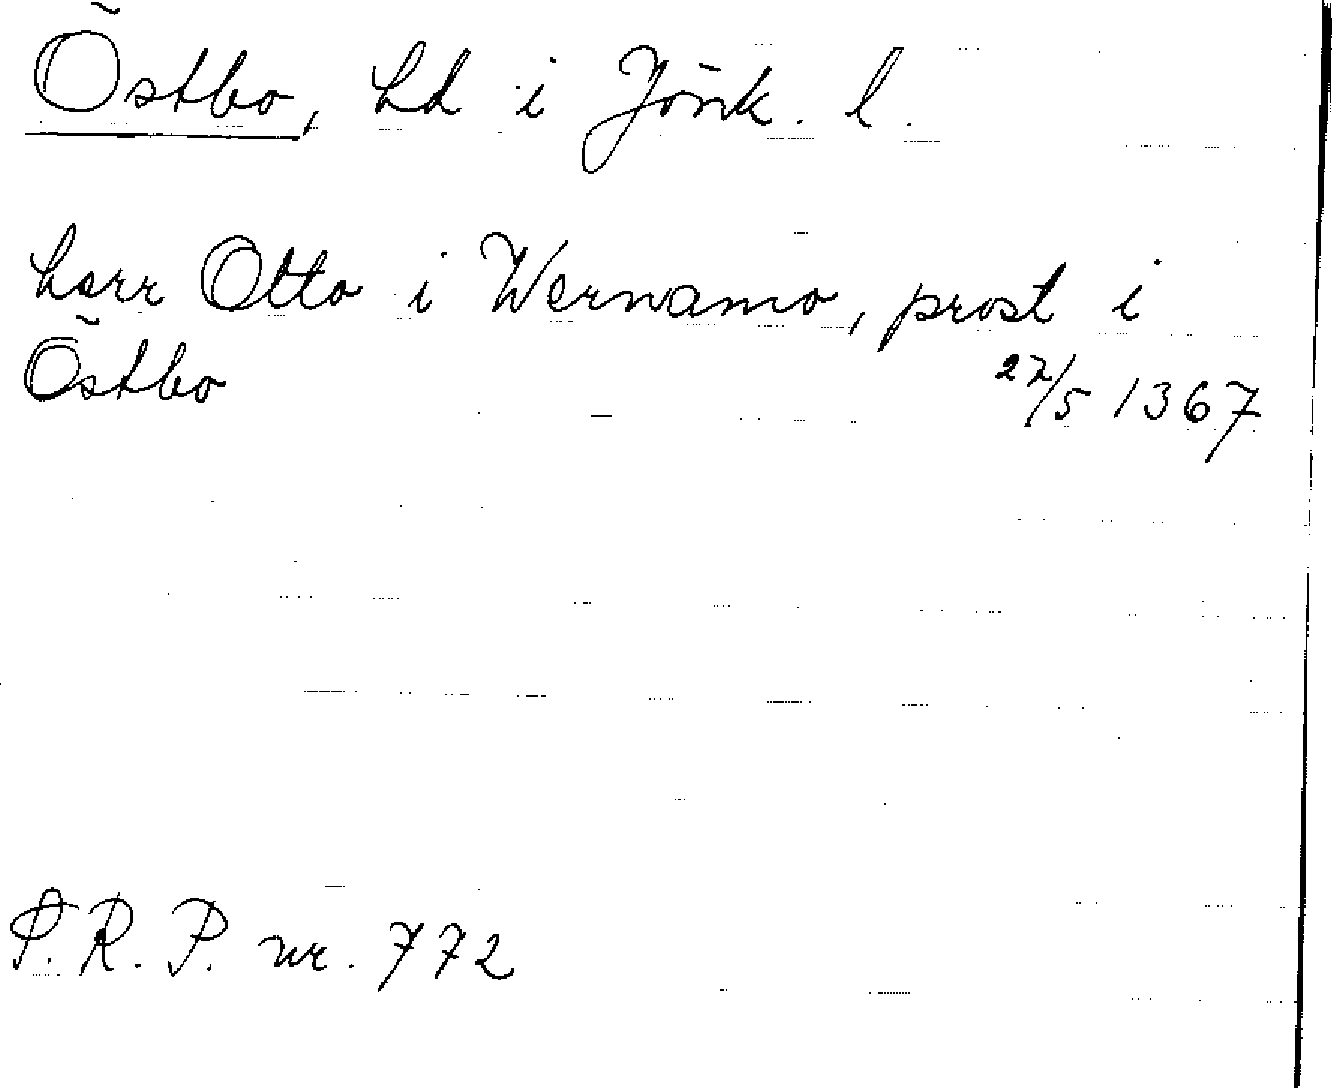 Östbo, hd i Jönk. l.
herr Otto i Wernamo, prost i
Östbo 27/5 1367
P.R.P. nr. 772